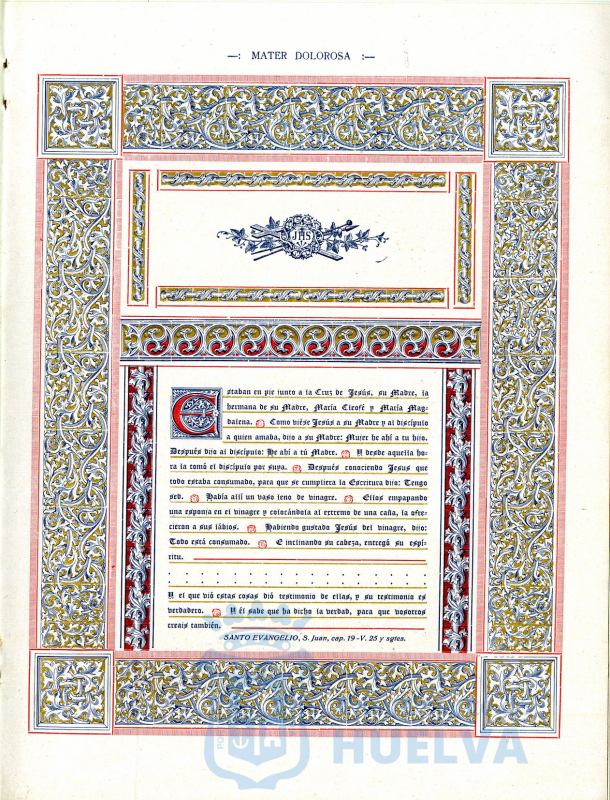 —: MATER DOLOROSA :—
JHS
Estaban en pie junto a la Cruz de Jesús, su Madre, la
hermana de su Madre, María Cleofé y María Mag-
dalena. Como viése Jesús a su Madre y al discípulo
a quien amaba, dijo a su Madre: Mujer he ahí a tu hijo.
Después dijo al discípulo: He ahí a tú Madre. Y desde aquella ho-
ra la tomó el discípulo por suya. Después conociendo Jesus que
todo estaba consumado, para que se cumpliera la Escritura dijo: Tengo
sed. Había allí un vaso leno de vinagre. Ellos empapando
una esponja en el vinagre y colocándola al extremo de una caña, la ofre-
cieron a sus lábios. Habiendo gustado Jesús del vinagre, dijo:
Todo está consumado. E inclinando su cabeza, entregó su espí-
ritu.
Y el que vió estas cosas dió testimonio de ellas, y su testimonio es
verdadero. Y él sabe que ha dicho la verdad, para que vosotros
creais también.
SANTO EVANGELIO, S. Juan, cap. 19 - V. 25 y sgtes.
HUELVA